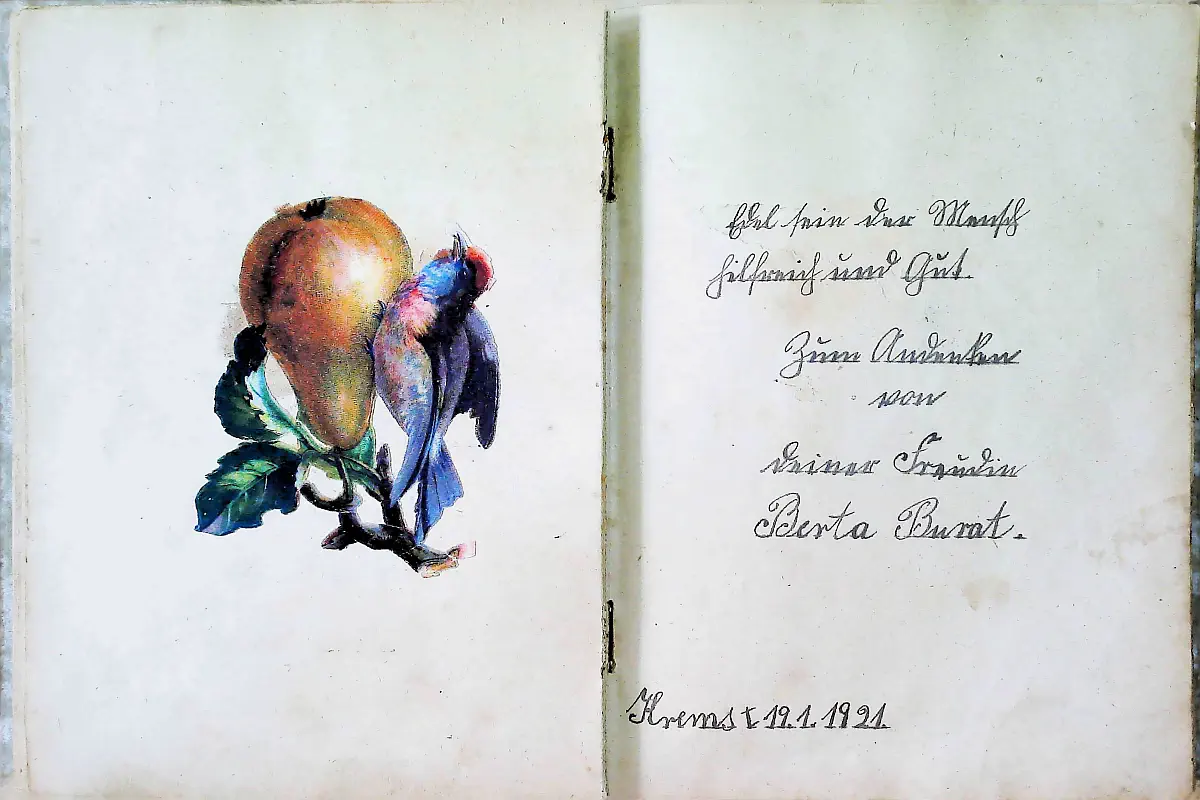 Edel sein der Mensch
hilfreich und Gut.
Zum Andenken
von
deiner Freudin
Berta Burat.
Krems t 19.1.1921.